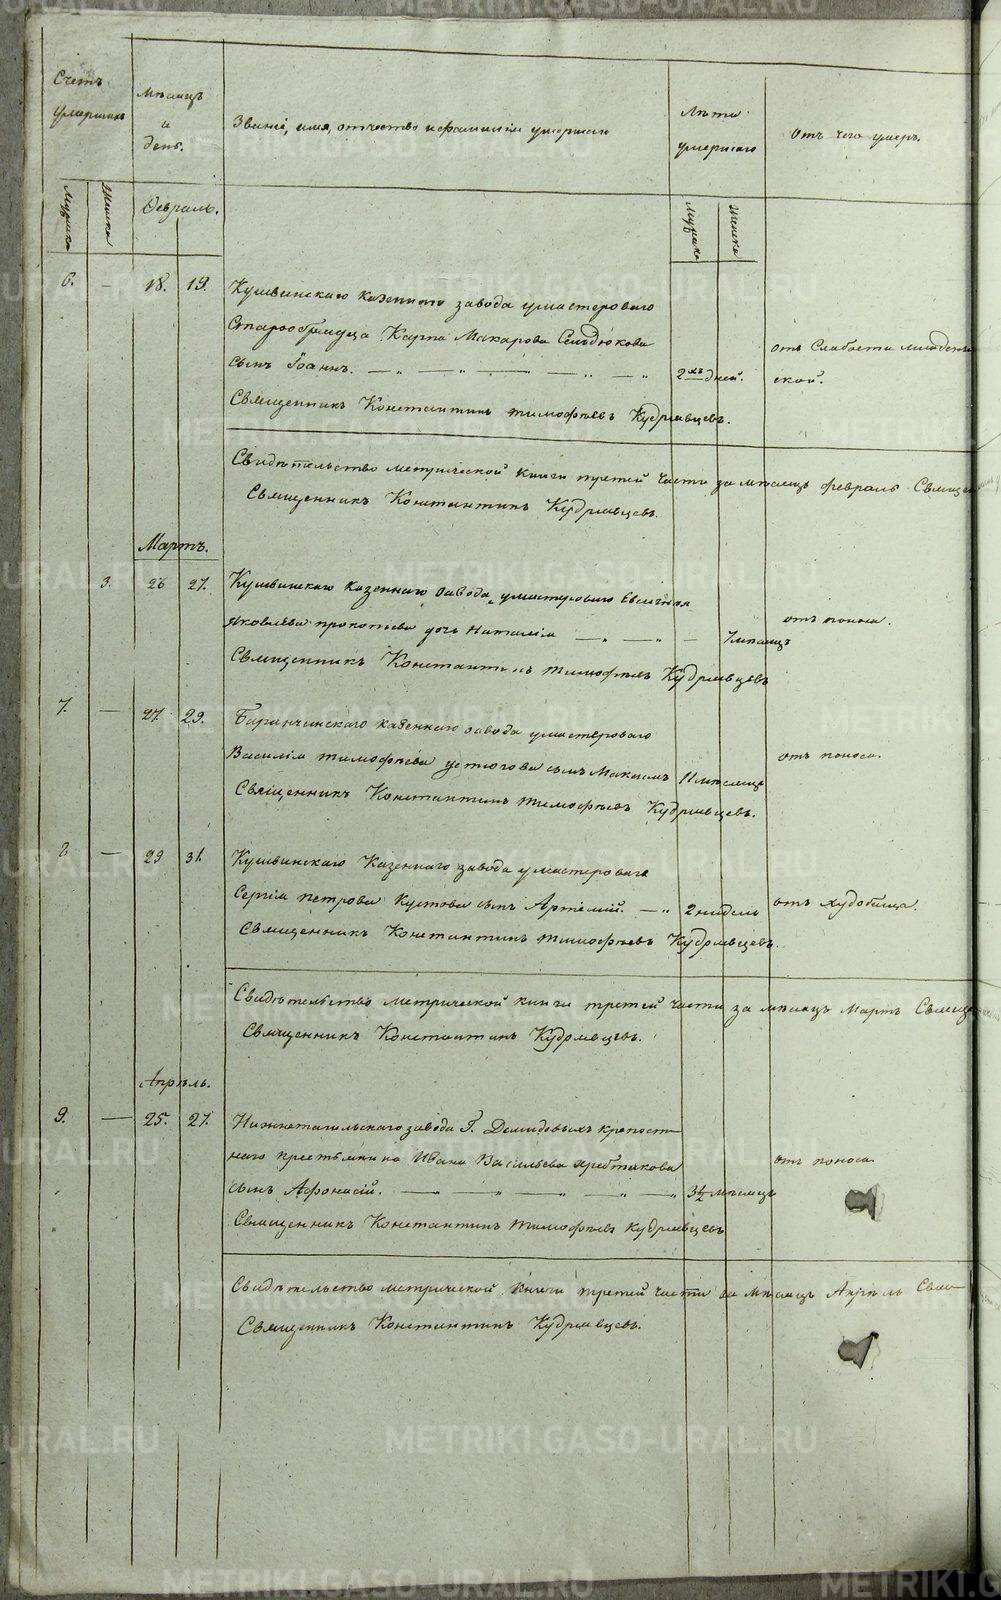 Счетъ умершихъ
Мѣсяцъ и день.
Званіе, имя, отчество и фамилія умершаго
Лѣта умершаго
Отъ чего умеръ.
Мужска
Женска
Февраль.
Мужска
Женска
6. — 18. 19. Кушвинскаго казеннаго завода умастероваго
Старообрядца Карпа Макарова Сельдюкова
отъ Слабости младенче
сынъ Іоаннъ. 2хъ дней. ской.
Священникъ Константинъ Тимофѣевъ Кудрявцевъ.
Свидѣтельство метрической книги третей части за мѣсяцъ февраль Свяще
Священникъ Константинъ Кудрявцевъ.
Мартъ.
3. 26 27. Кушвинскаго казеннаго завода умастероваго
Яковлева прокопьева дочь Наталія — „ — „ — 7 мѣсяцъ отъ поноса.
Священникъ Константинъ Тимофѣевъ Кудрявцевъ
7. — 27. 29. Баранчинскаго казеннаго завода умастероваго
Василія тимофѣева устюгова сынъ Максимъ 11 мѣсяцъ отъ поноса.
Священникъ Константинъ Тимофѣевъ Кудрявцевъ.
8 — 29 31. Кушвинскаго Казеннаго завода умастероваго
Сергія петрова Кустова сынъ Артемій. — „ 2 нидѣль отъ худобища.
Священникъ Константинъ Тимофѣевъ Кудрявцевъ.
Свидѣтельство метрической книги третей части за мѣсяцъ Мартъ Свяще
Священникъ Константинъ Кудрявцевъ.
Апрѣль.
9. — 25. 27. Нижнетагильскаго завода Г. Демидовыхъ крепост-
наго крестьянина Ивана Васильева отъ поноса.
сынъ Афонасій. 3½ мѣсяцъ
Священникъ Константинъ Тимофѣевъ Кудрявцевъ
Свидѣтельство метрической книги третей части за мѣсяцъ Апрѣль Свя
Священникъ Константинъ Кудрявцевъ.
METRIKI.GASO-URAL.RU